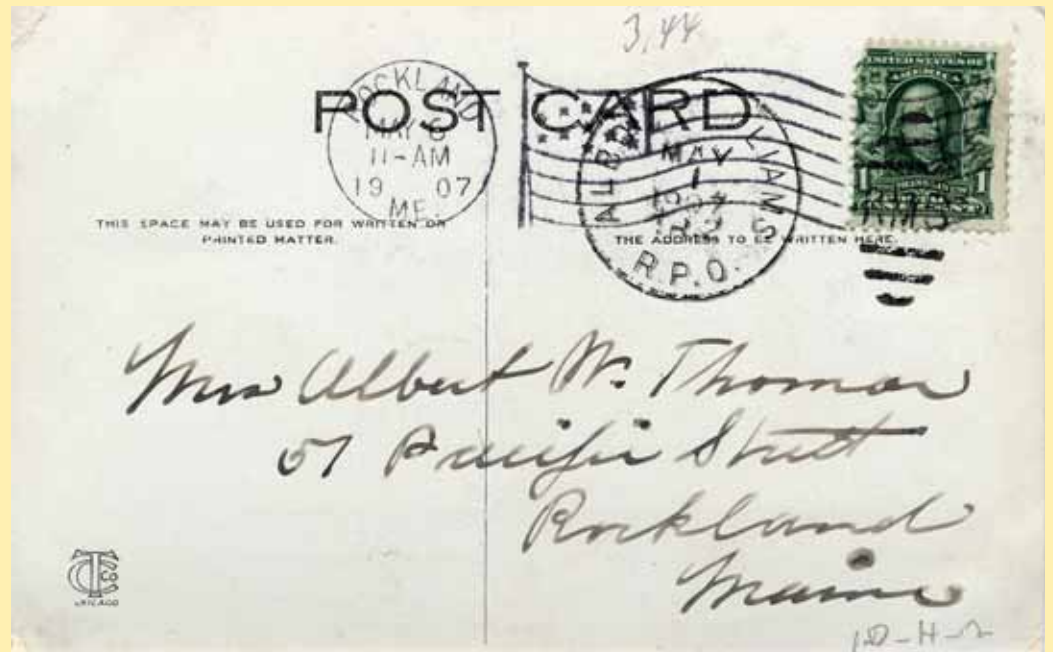 3,44
POST CARD
ROCKLAND
MAY
11-AM
19 07
ME.
MAY
1
R.P.O.
UNITED STATES OF
AMERICA
1 1
THIS SPACE MAY BE USED FOR WRITTEN OR
PRINTED MATTER.
THE ADDRESS TO BE WRITTEN HERE.
Mrs Albert W. Thomas
57 Pacific Street
Rockland
Maine
CHICAGO